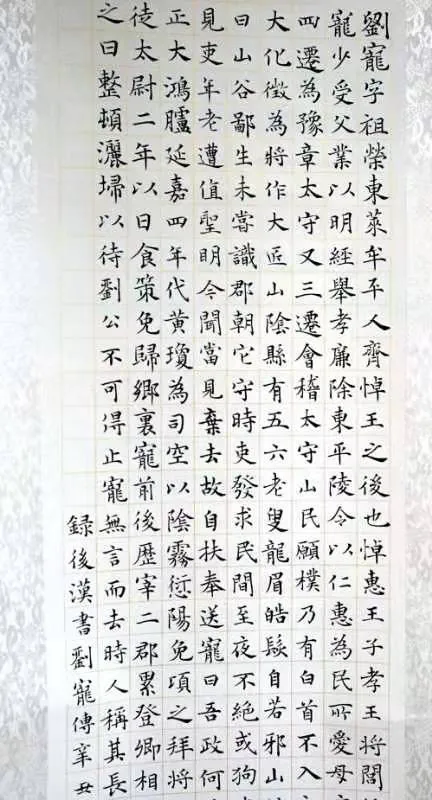 劉寵字祖榮東萊牟平人齊悼王之後也悼惠王子孝王將閭
寵少受父業以明經舉孝廉除東平陵令以仁惠為民所愛母
四遷為豫章太守又三遷會稽太守山民願樸乃有白首不入
大化徵為將作大匠山陰縣有五六老叟龍眉皓髮自若邪山
曰山谷鄙生未嘗識郡朝它守時吏發求民間至夜不絕或狗
見吏年老遭值聖明今聞當見棄去故自扶奉送寵曰吾政何
正大鴻臚延嘉四年代黃瓊為司空以陰霧愆陽免頃之拜將
徒太尉二年以日食策免歸鄉裏寵前後歷宰二郡累登卿相
之曰整頓灑埽以待劉公不可得止寵無言而去時人稱其長
録後漢書劉寵傳辛丑